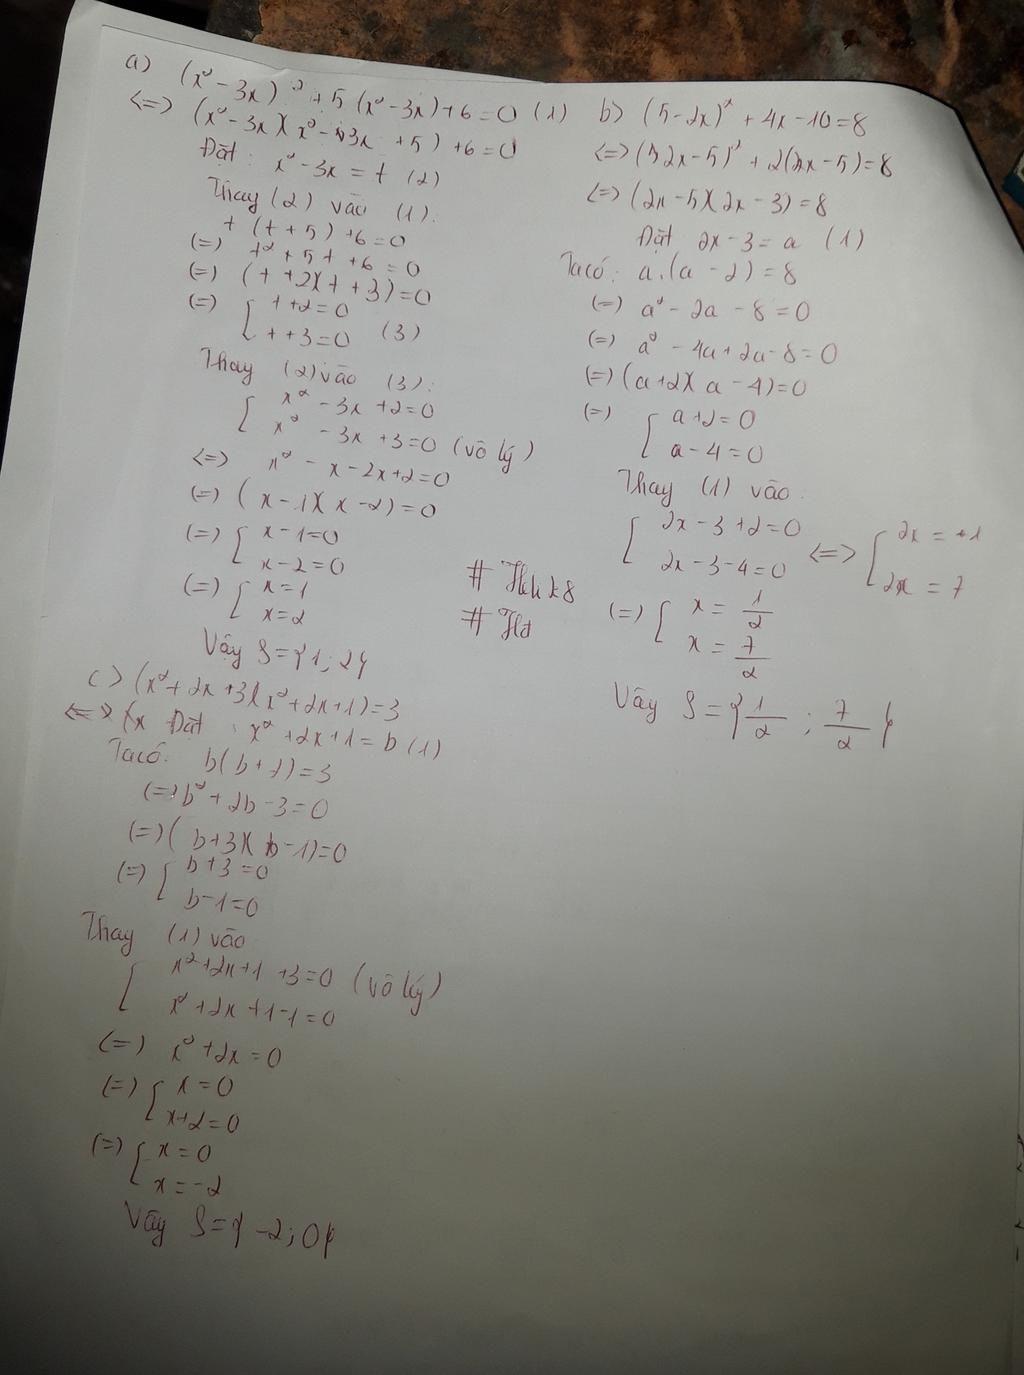 a) (x² - 3x)² + 5 (x² - 3x) + 6 = 0 (1)
<=> (x² - 3x)(x² - 3x + 5) + 6 = 0
Đặt : x² - 3x = t (2)
Thay (2) vào (1):
t (t + 5) + 6 = 0
(=) t² + 5t + 6 = 0
(=) (t + 2)(t + 3) = 0
(=) [ t + 2 = 0
t + 3 = 0 (3)
Thay (2) vào (3):
[ x² - 3x + 2 = 0
x² - 3x + 3 = 0 (vô lý)
<=> x² - x - 2x + 2 = 0
(=) (x - 1)(x - 2) = 0
(=) [ x - 1 = 0
x - 2 = 0
(=) [ x = 1
x = 2
Vậy S = {1; 2}
b) (5 - 2x)² + 4x - 10 = 8
<=> (2x - 5)² + 2(2x - 5) = 8
<=> (2x - 5)(2x - 3) = 8
Đặt 2x - 3 = a (1)
Ta có: a.(a - 2) = 8
(=) a² - 2a - 8 = 0
(=) a² - 4a + 2a - 8 = 0
(=) (a + 2)(a - 4) = 0
(=) [ a + 2 = 0
a - 4 = 0
Thay (1) vào:
[ 2x - 3 + 2 = 0 <=> [ 2x = 1
2x - 3 - 4 = 0 2x = 7
(=) [ x = 1/2
x = 7/2
Vậy S = {1/2 ; 7/2}
# Hà
c) (x² + 2x + 3)(x² + 2x + 1) = 3
<=> Đặt : x² + 2x + 1 = b (1)
Ta có: b(b + 2) = 3
(=) b² + 2b - 3 = 0
(=) (b + 3)(b - 1) = 0
(=) [ b + 3 = 0
b - 1 = 0
Thay (1) vào
[ x² + 2x + 1 + 3 = 0 (vô lý)
x² + 2x + 1 - 1 = 0
(=) x² + 2x = 0
(=) [ x = 0
x + 2 = 0
(=) [ x = 0
x = -2
Vậy S = {-2; 0}